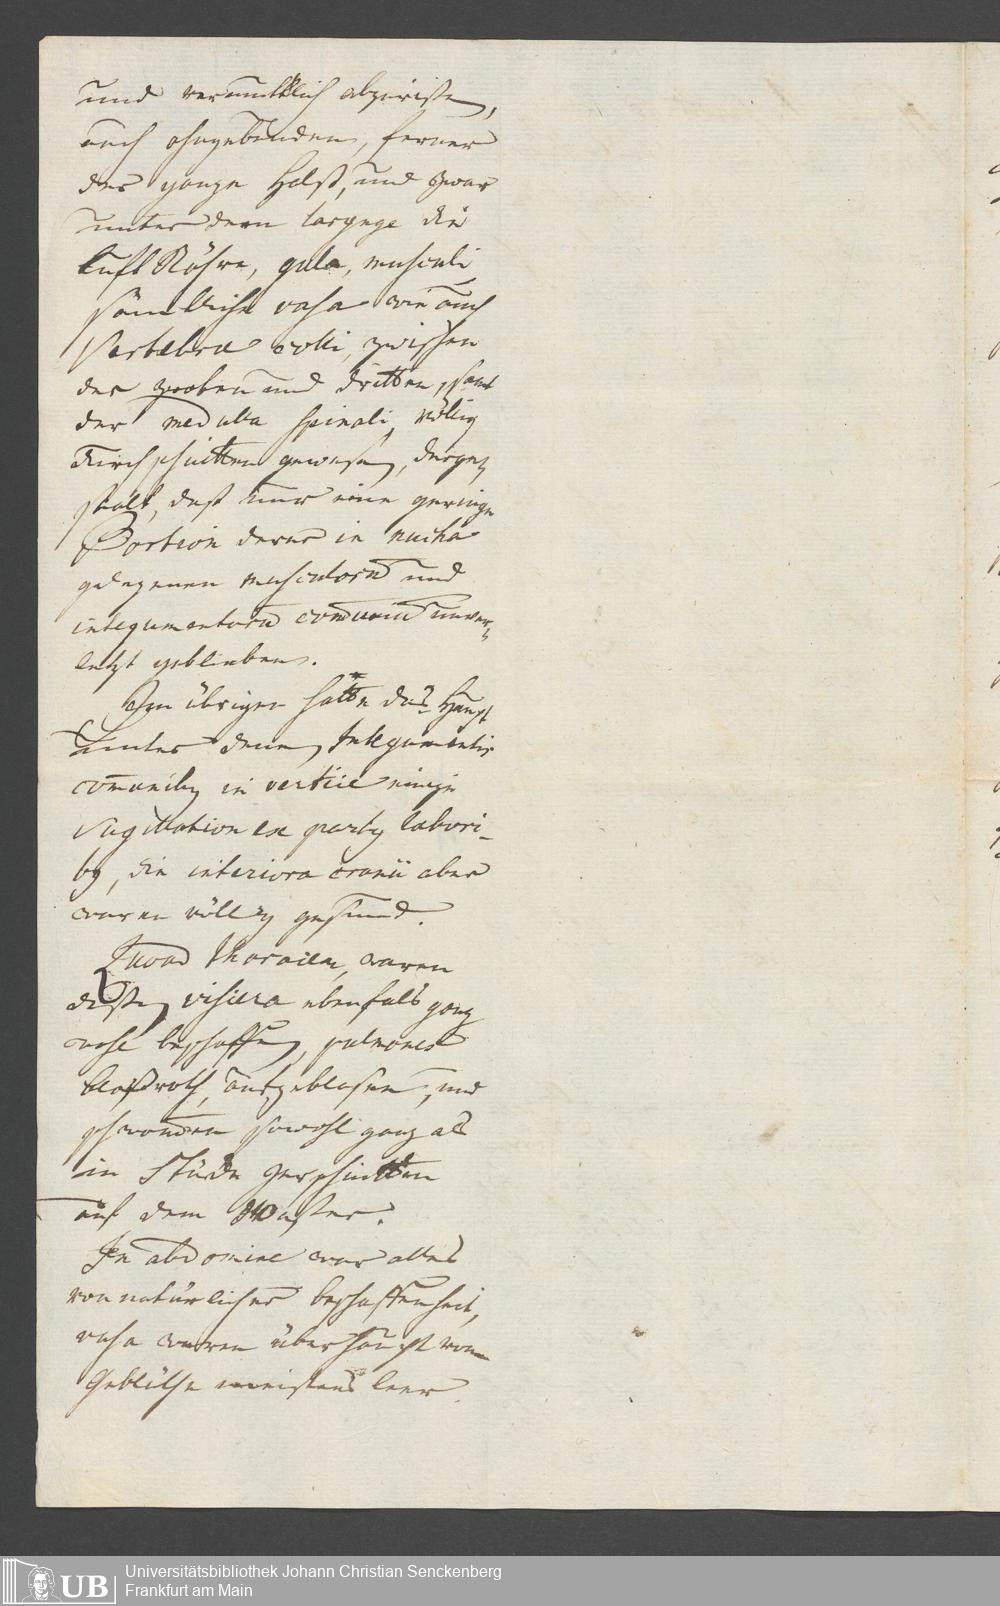 und vermuthlich abgerißen,
auch ohngebunden, ferner
der ganze Halß, und zwar
unter dem larynge die
Luft Röhre, gula, musculi,
sämtliche vasa wie auch
Vertebra colli, zwischen
der zwoten und dritten, samt
der medulla spinali, völlig
durchschnitten gewesen, derge-
stalt, daß nur eine geringe
Portion derer in nucha
gelegenen musculorum und
integumentorum communium unver-
letzt geblieben.
Im übrigen hatte das Haupt
unter denen Integumentis
communibus in vertice einige
Sugillationen ex partus labori-
bus, die interiora cranii aber
waren völlig gesund.
Quoad Thoracem, waren
deßen viscera ebenfals ganz
wohl beschaffen, pulmones
blaßroth, aufgeblasen, und
schwomen sowohl ganz als
in Stücke zerschnitten
auf dem Waßer.
In abdomine war alles
von natürlicher beschaffenheit,
vasa waren überhaupt vom
Geblüthe meistens leer.
Universitätsbibliothek Johann Christian Senckenberg
Frankfurt am Main
UB